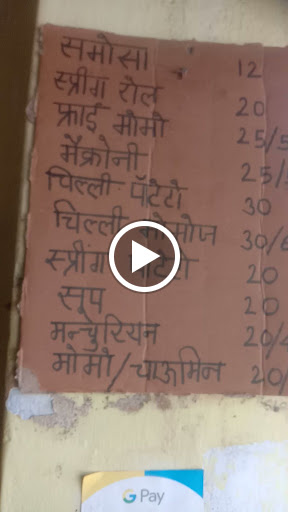 समोसा 12
स्प्रींग रोल 20
फ्राई मोमो 25/5
मैक्रोनी 25/
चिल्ली पॅटेटो 30
चिल्ली 30/6
स्प्रींग 20
सूप 20
मन्चुरियन 20/4
मोमो/चाऊमिन 20/
G Pay